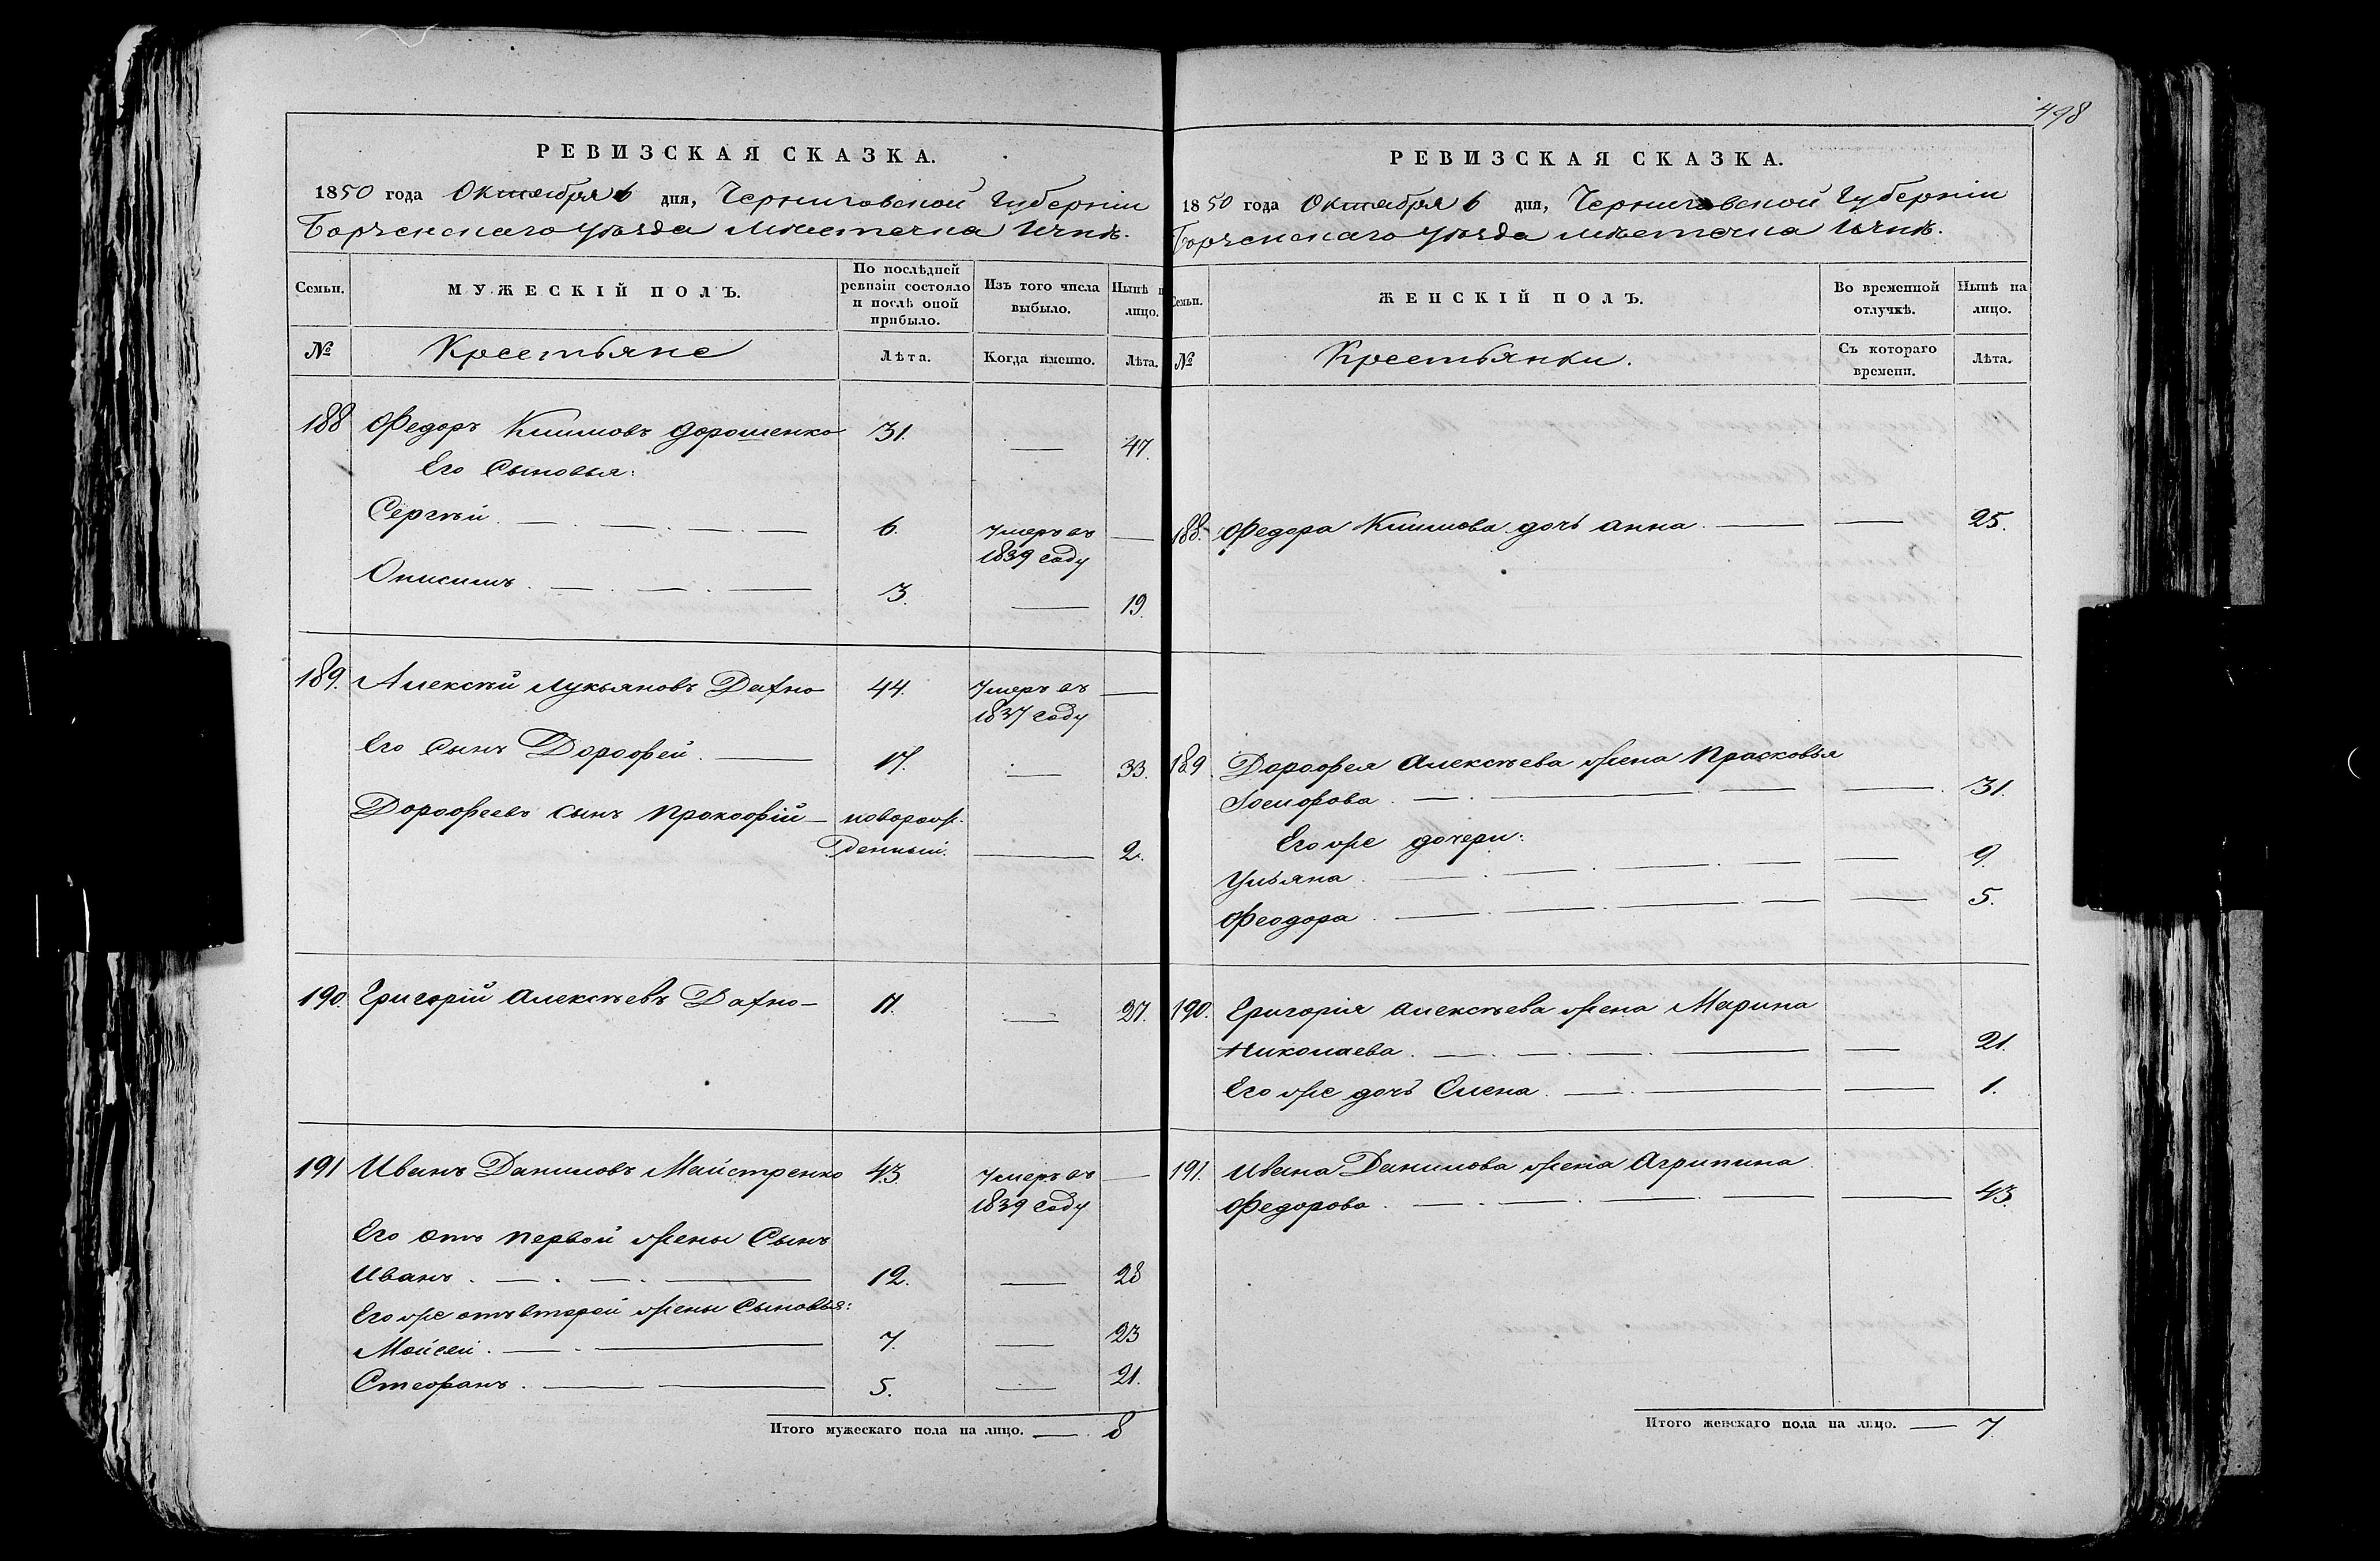 РЕВИЗСКАЯ СКАЗКА.
1850 года Октября 6 дня, Черниговской Губерніи
Борзенскаго уѣзда мѣстечка Ични.
Семьи.
МУЖЕСКІЙ ПОЛЪ.
По послѣдней
ревизіи состояло
и послѣ оной
прибыло.
Изъ того числа
выбыло.
Нынѣ н
лицо.
№
Крестьяне
Лѣта.
Когда именно.
Лѣта.
188 Федоръ Климовъ Дорошенко 31. — 47.
Его Сыновья:
Сергѣй 6. Умеръ въ —
1839 году
Онисимъ 3. — 19.
189. Алексѣй Лукьяновъ Дахно 44. Умеръ въ —
1837 году
Его сынъ Дорофей 17. — 33.
Дорофеевъ сынъ Прокофій — новорож-
денный. — 2.
190. Григорій Алексѣевъ Дахно — 11. — 27.
191 Иванъ Даниловъ Майстренко 43. Умеръ въ —
1839 году
Его отъ первой жены Сынъ
Иванъ 12. — 28
Его же отъ второй жены Сыновья:
Мойсей 7. — 23
Стефанъ 5. — 21.
Итого мужескаго пола на лицо. — 8
498
РЕВИЗСКАЯ СКАЗКА.
1850 года Октября 6 дня, Черниговской Губерніи
Борзенскаго уѣзда мѣстечка Ични.
Семьи.
ЖЕНСКІЙ ПОЛЪ.
Во временной
отлучкѣ.
Нынѣ на
лицо.
№
Крестьянки.
Съ котораго
времени.
Лѣта.
188. Федора Климова дочь Анна — 25.
189 Дорофея Алексѣева жена Прасковья
— 31.
Его же дочери:
Ульяна — 9.
Феодора — 5.
190. Григорія Алексѣева жена Марина
Николаева — 21.
Его же дочь Елена — 1.
191. Ивана Данилова жена Агрипина
Федорова — 43.
Итого женскаго пола на лицо. — 7.